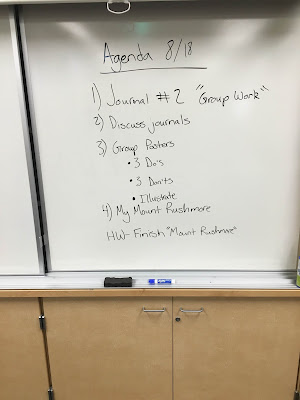 Agenda 8/18
1) Journal #2 "Group Work"
2) Discuss journals
3) Group Posters
• 3 Do's
• 3 Don'ts
• Illustrate
4) My Mount Rushmore
HW- Finish "Mount Rushmore"